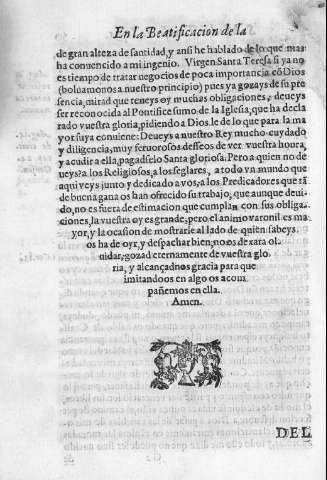 En la Beatificacion de la
de gran alteza de santidad, y ansi he hablado de lo que mas
ha conuencido a mi ingenio. Virgen Santa Teresa si ya no
es tiempo de tratar negocios de poca importancia cō Dios
(boluamonos a nuestro principio) pues ya gozays de su pre
sencia, mirad que teneys oy muchas obligaciones, deueys
ser reconocida al Pontifice sumo de la Iglesia, que ha decla
rado vuestra gloria, pidiendo a Dios le de lo que para la ma
yor suya conuiene: Deueys a nuestro Rey mucho cuydado
y diligencia, muy feruorosos desseos de ver vuestra honra,
y acudir a ella, pagadselo Santa gloriosa. Pero a quien no de
ueys? a los Religiosos, a los seglares, a todo vn mundo que
aqui veys junto y dedicado a vos, a los Predicadores que tā
de buena gana os han ofrecido su trabajo, que aunque deui-
do, no es fuera de estimacion que cumplan con sus obliga-
ciones, la vuestra oy es grande, pero el animo varonil es ma
yor, y la ocasion de mostrarle al lado de quien sabeys
os ha de oyr, y despachar bien, no os de xara ol
uidar, gozad eternamente de vuestra glo
ria, y alcançadnos gracia para que
imitandoos en algo os acom
pañemos en ella.
Amen.
DEL